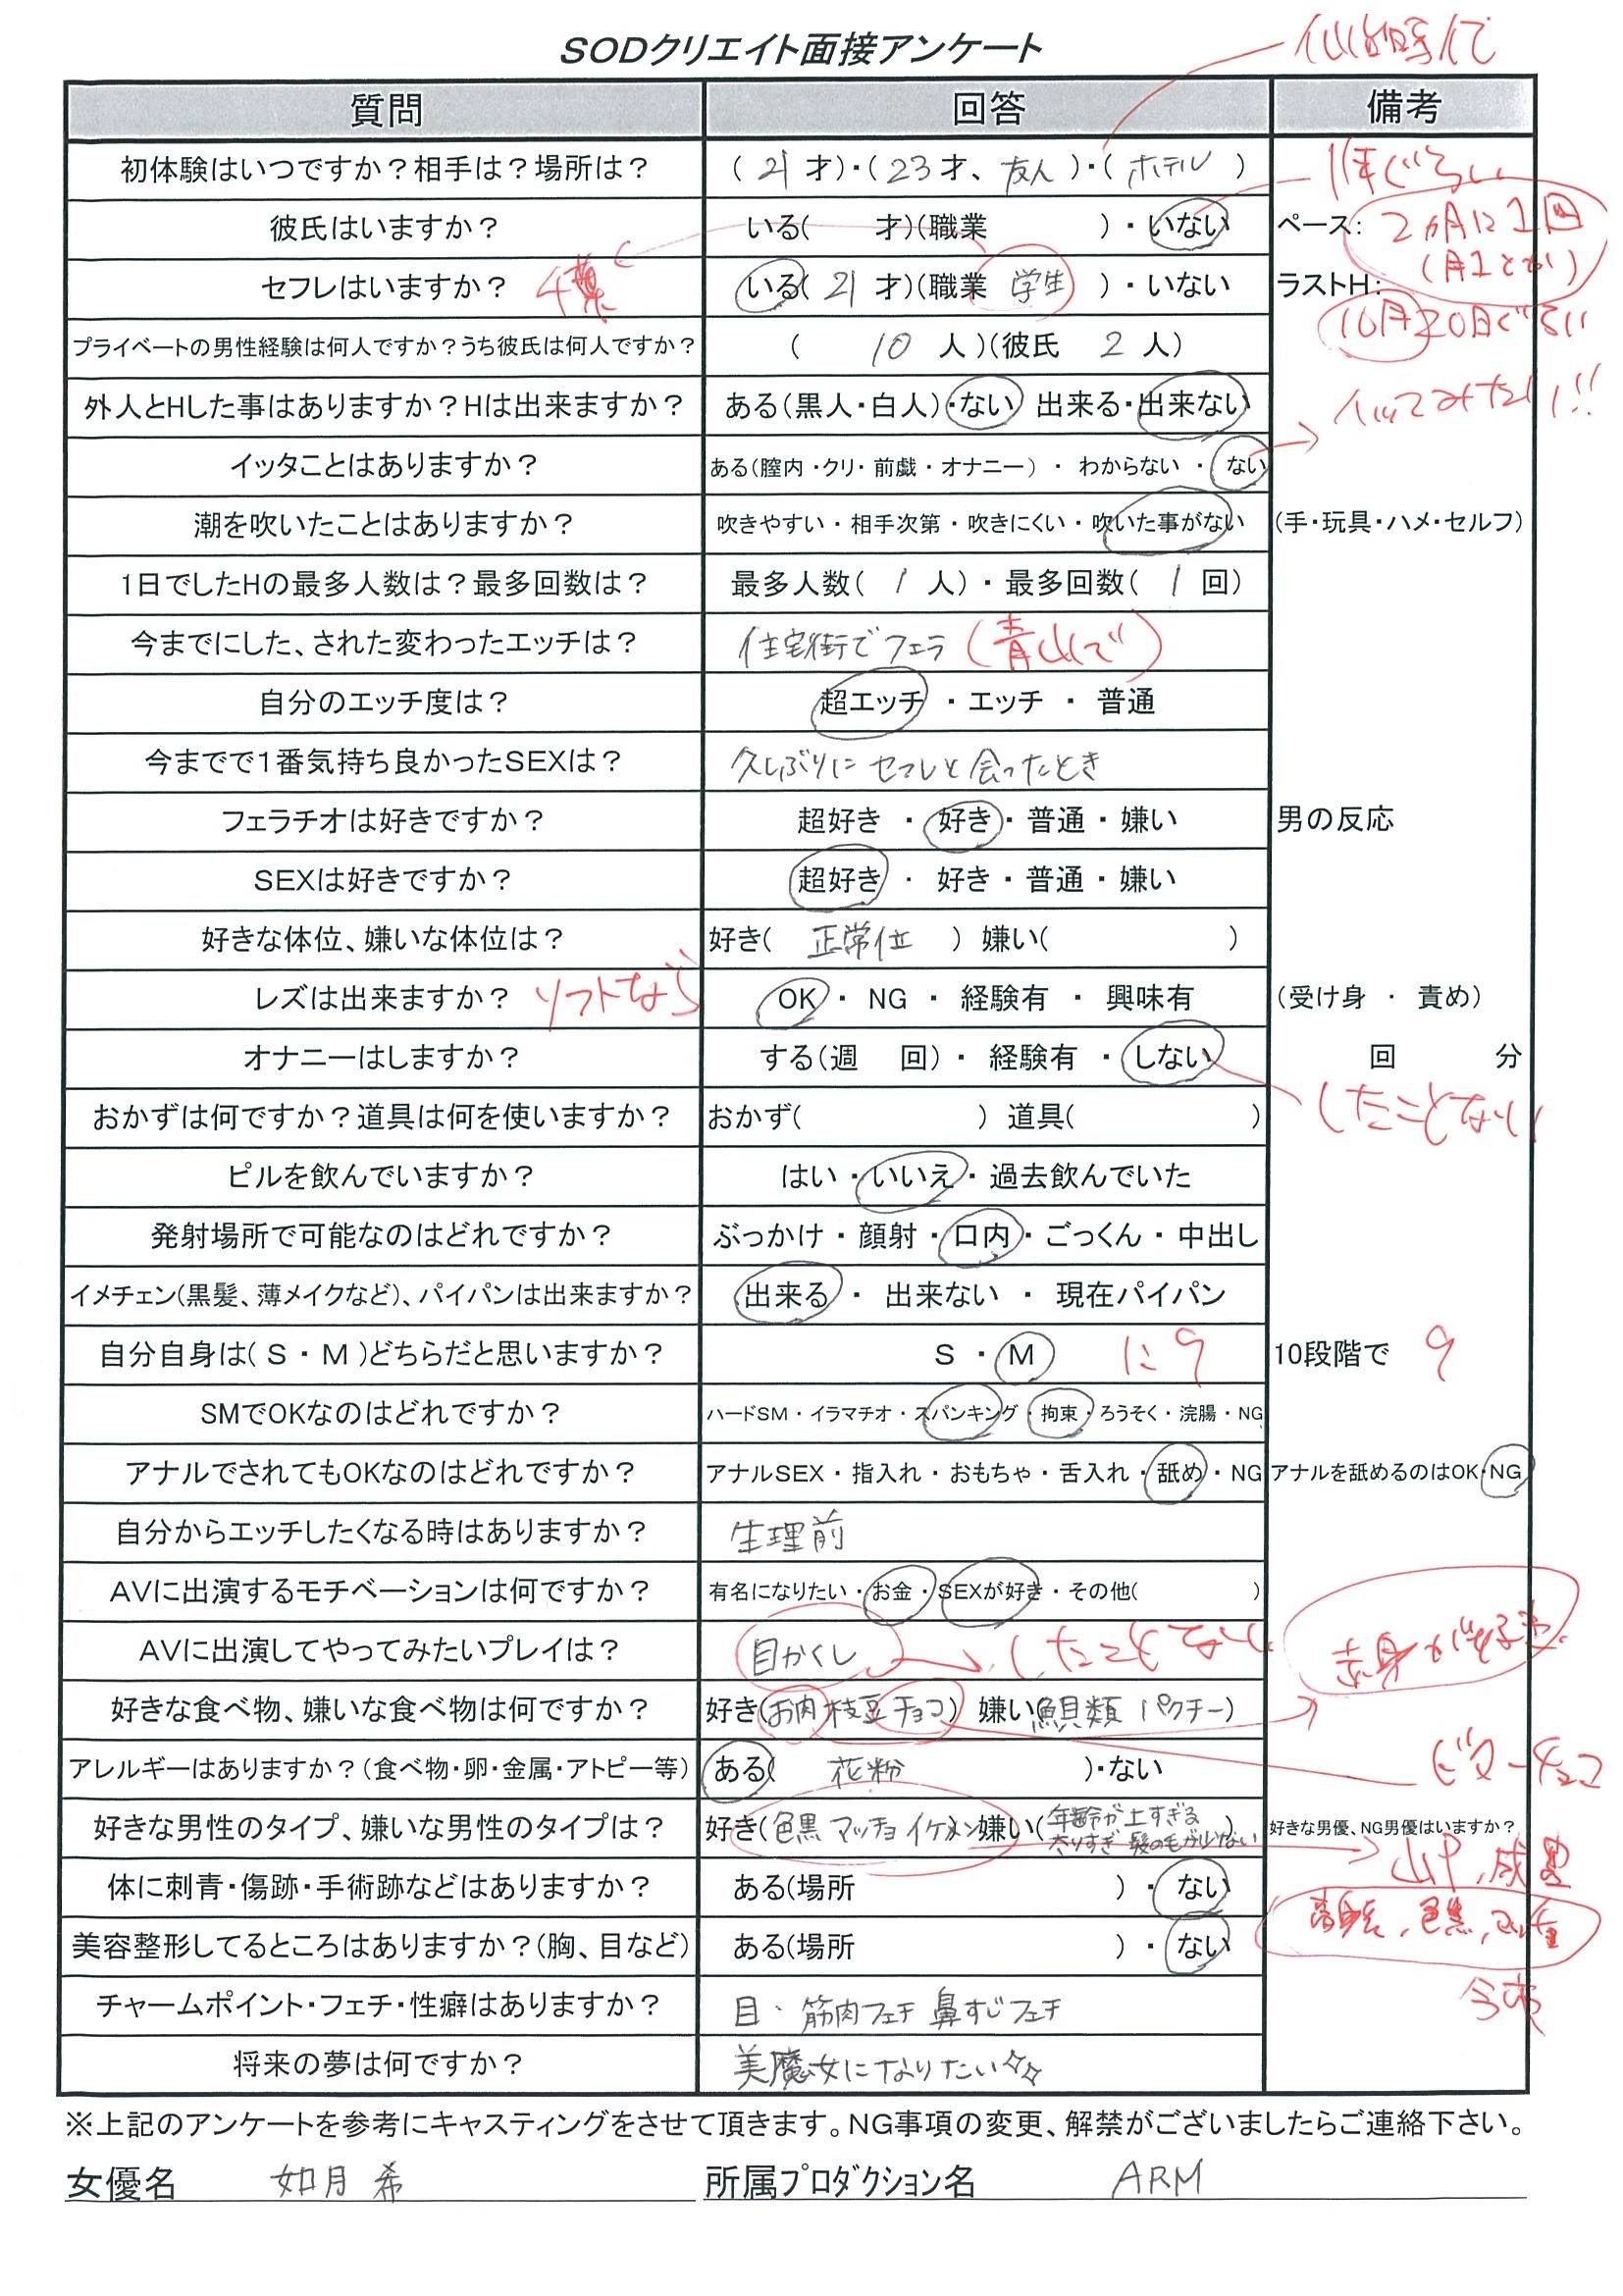 SODクリエイト面接アンケート
質問 回答 備考
初体験はいつですか?相手は?場所は? ( 21 才)・( 23才、友人 )・( ホテル ) 1年ぐらい
彼氏はいますか? いる( 才)(職業 )・いない ペース: 2ヵ月に1回
(月1とか)
セフレはいますか? 千葉 いる( 21 才)(職業 学生 )・いない ラストH:
10月20日ぐらい
プライベートの男性経験は何人ですか?うち彼氏は何人ですか? ( 10 人)(彼氏 2 人)
外人とHした事はありますか?Hは出来ますか? ある(黒人・白人)・ない 出来る・出来ない イッてみたい!!
イッタことはありますか? ある(膣内・クリ・前戯・オナニー)・わからない・ない
潮を吹いたことはありますか? 吹きやすい・相手次第・吹きにくい・吹いた事がない (手・玩具・ハメ・セルフ)
1日でしたHの最多人数は?最多回数は? 最多人数( 1 人)・最多回数( 1 回)
今までにした、された変わったエッチは? 住宅街でフェラ (青山で)
自分のエッチ度は? 超エッチ・エッチ・普通
今までで1番気持ち良かったSEXは? 久しぶりにセフレと会ったとき
フェラチオは好きですか? 超好き・好き・普通・嫌い 男の反応
SEXは好きですか? 超好き・好き・普通・嫌い
好きな体位、嫌いな体位は? 好き( 正常位 ) 嫌い( )
レズは出来ますか? ソフトなら OK・NG・経験有・興味有 (受け身・責め)
オナニーはしますか? する(週 回)・経験有・しない 回 分
おかずは何ですか?道具は何を使いますか? おかず( ) 道具( ) したことない
ピルを飲んでいますか? はい・いいえ・過去飲んでいた
発射場所で可能なのはどれですか? ぶっかけ・顔射・口内・ごっくん・中出し
イメチェン(黒髪、薄メイクなど)、パイパンは出来ますか? 出来る・出来ない・現在パイパン
自分自身は( S・M )どちらだと思いますか? S・M に9 10段階で 9
SMでOKなのはどれですか? ハードSM・イラマチオ・スパンキング・拘束・ろうそく・浣腸・NG
アナルでされてもOKなのはどれですか? アナルSEX・指入れ・おもちゃ・舌入れ・舐め・NG アナルを舐めるのはOK・NG
自分からエッチしたくなる時はありますか? 生理前
AVに出演するモチベーションは何ですか? 有名になりたい・お金・SEXが好き・その他( )
AVに出演してやってみたいプレイは? 目かくし したことない 赤身が好き
好きな食べ物、嫌いな食べ物は何ですか? 好き(お肉 枝豆 チョコ) 嫌い(貝類 パクチー)
アレルギーはありますか?(食べ物・卵・金属・アトピー等) ある( 花粉 )・ない ビターチョコ
好きな男性のタイプ、嫌いな男性のタイプは? 好き(色黒 マッチョ イケメン 嫌い(年齢が上すぎる 太りすぎ 髪の毛が少ない) 好きな男優、NG男優はいますか?
山P
体に刺青・傷跡・手術跡などはありますか? ある(場所 )・ない
色黒、
美容整形してるところはありますか?(胸、目など) ある(場所 )・ない
チャームポイント・フェチ・性癖はありますか? 目・筋肉フェチ 鼻すじフェチ
将来の夢は何ですか? 美魔女になりたい☆☆
※上記のアンケートを参考にキャスティングをさせて頂きます。NG事項の変更、解禁がございましたらご連絡下さい。
女優名 如月 希 所属プロダクション名 ARM